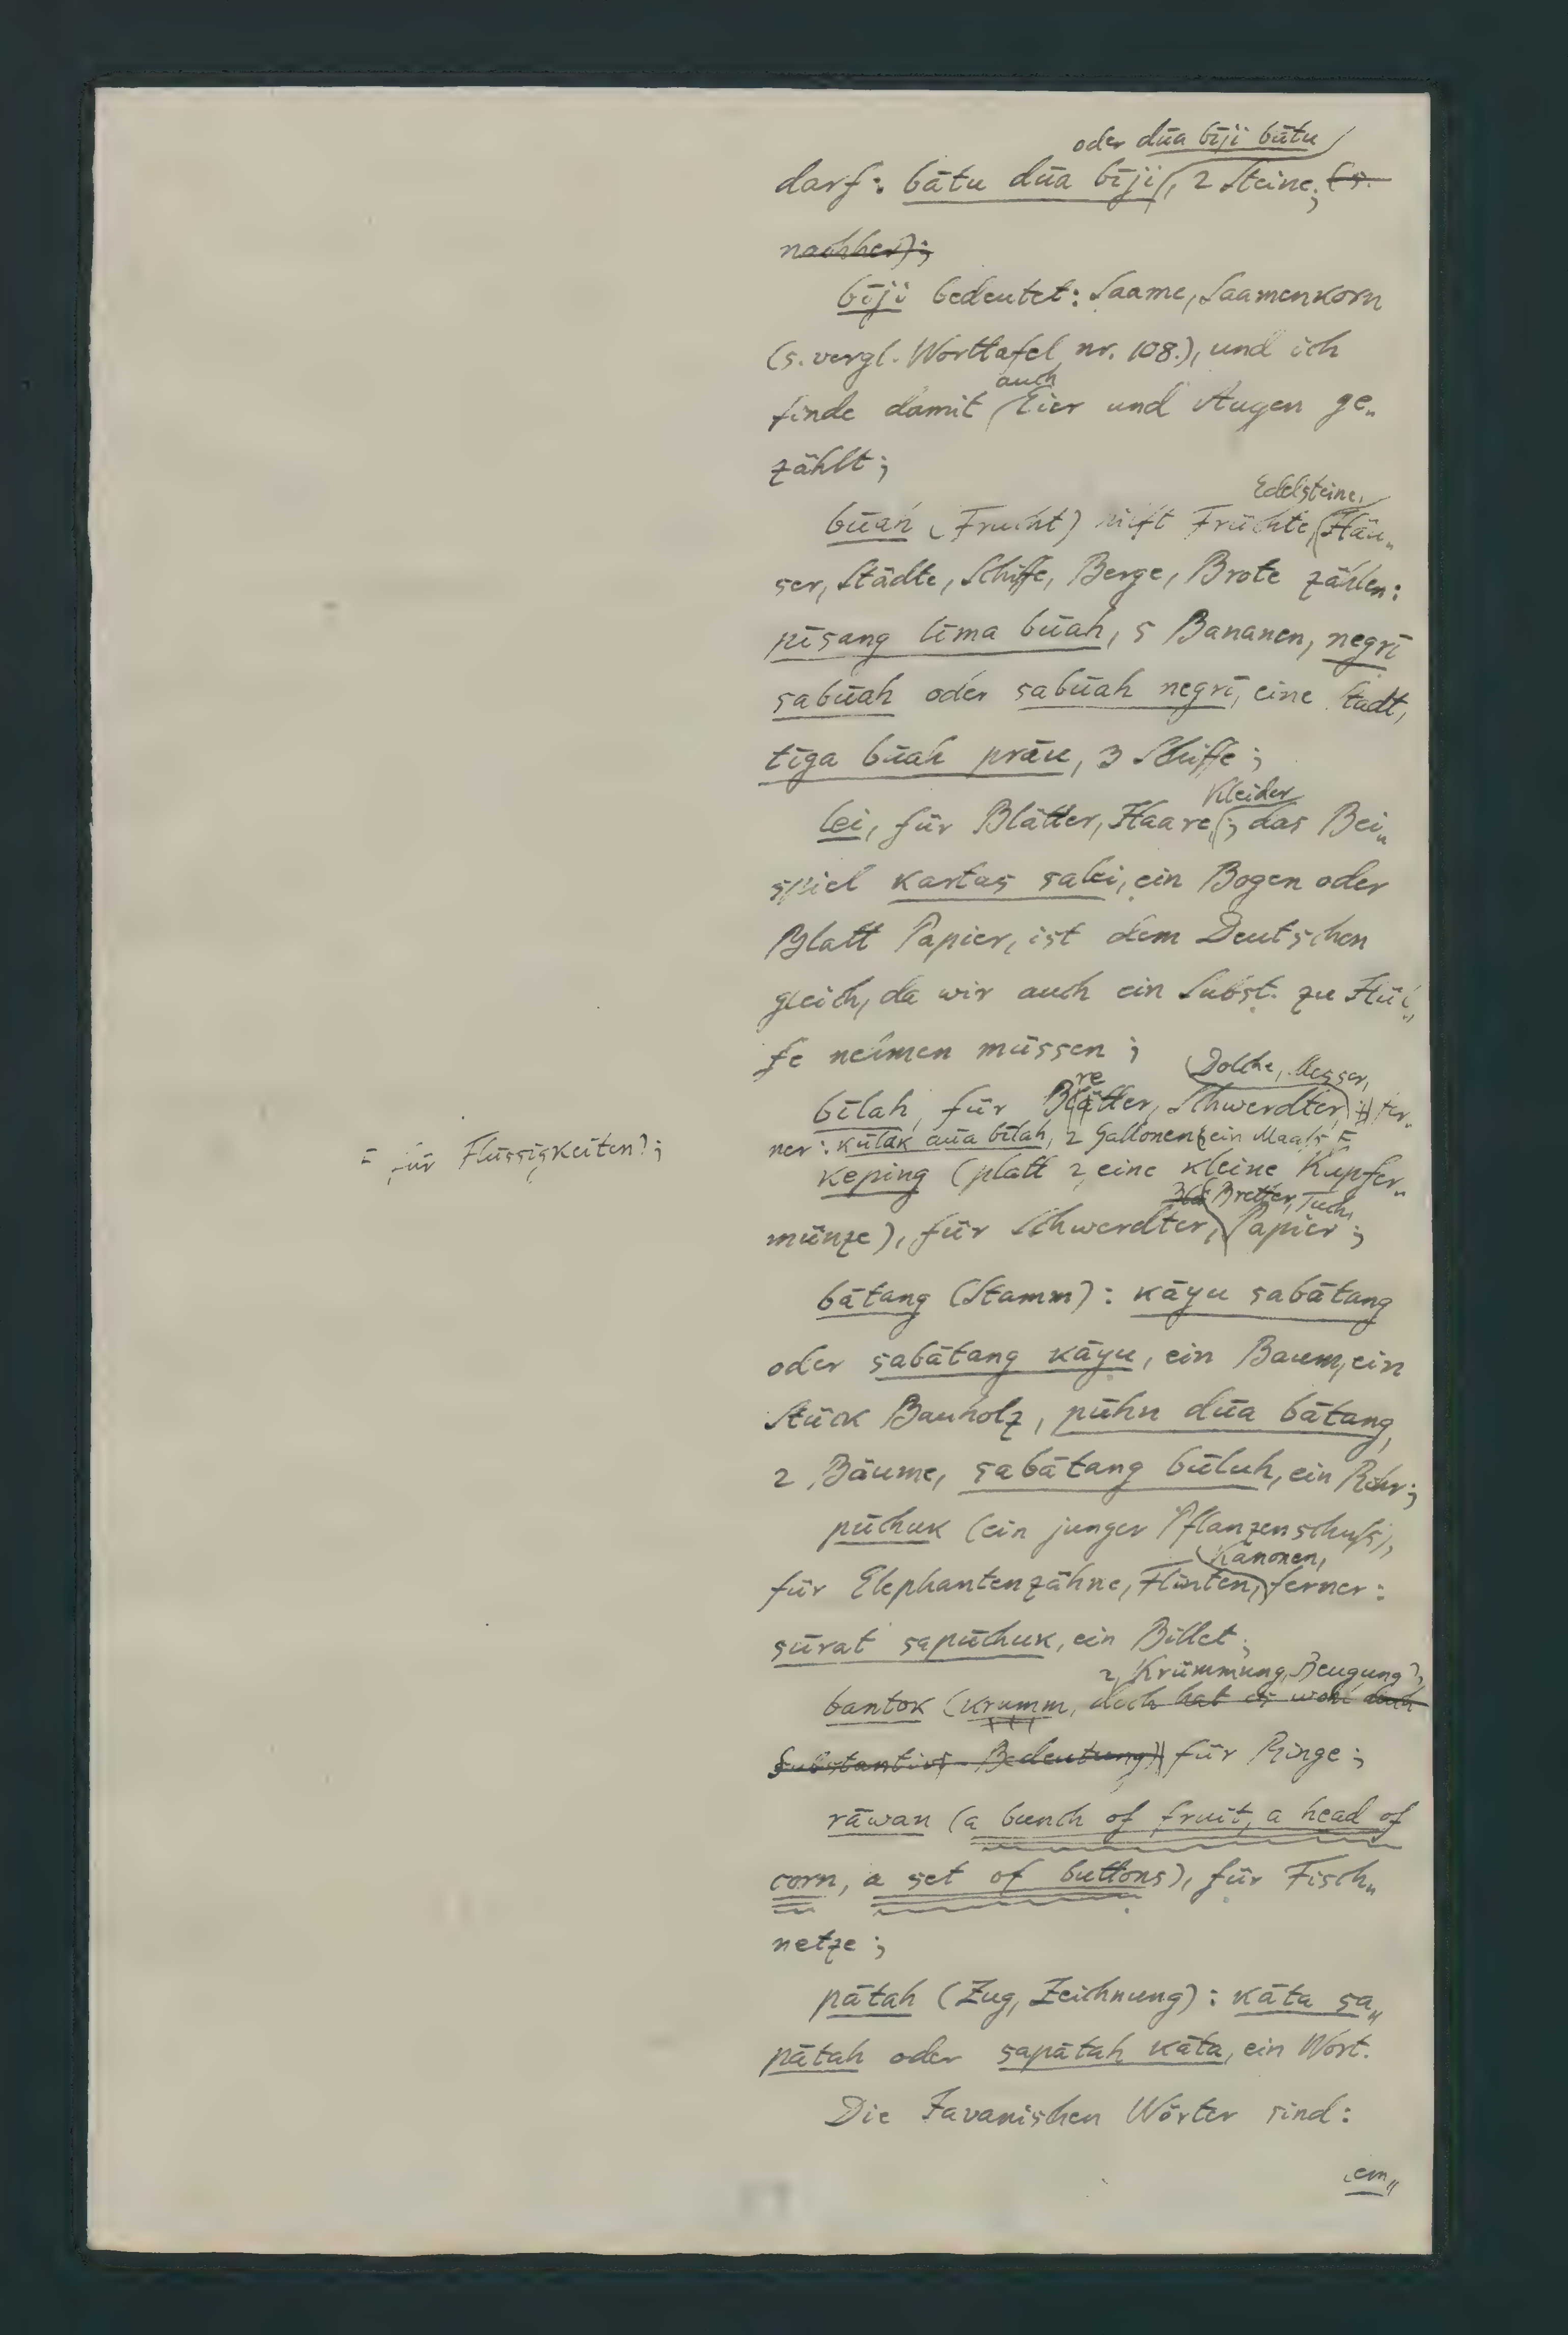 oder dūa bīji bātu
darf: bātu dūa bīji, 2 Steine; (s.
nachher);
bīji bedeutet: Saame, Saamenkorn
(s. vergl. Worttafel nr. 108.), und ich
auch
finde damit Eier und Augen ge„
zählt;
Edelsteine,
būah (Frucht) hilft Früchte, Häu„
ser, Städte, Schiffe, Berge, Brote zählen:
pīsang līma būah, 5 Bananen, negrī
sabūah oder sabūah negrī, eine Stadt,
tīga būah prāu, 3 Schiffe;
Kleider
lei, für Blätter, Haare; das Bei„
spiel kartas salei, ein Bogen oder
Blatt Papier, ist dem Deutschen
gleich, da wir auch ein Subst. zu Hül„
fe nehmen müssen;
Dolche, Messer,
re
bīlah, für Blätter, Schwerdter, fer„
ner: kūlak dūa bīlah, 2 Gallonen (ein Maaß
= für Flüssigkeiten?;
keping (platt 2, eine kleine Kupfer„
Bretter, Tuch,
münze), für Schwerdter, Papier;
bātang (Stamm): kāyu sabātang
oder sabātang kāyu, ein Baum, ein
Stück Bauholz, pūhn dūa bātang,
2 Bäume, sabātang būluh, ein Rohr;
pūchuk (ein junger Pflanzenschuß),
Kanonen,
für Elephantenzähne, Flinten, ferner:
sūrat sapūchuk, ein Billet;
2, Krümmung, Beugung?,
bantok (krumm, doch hat es wohl auch
Substantivs-Bedeutung) für Ringe;
rāwan (a bunch of fruit, a head of
corn, a set of buttons), für Fisch„
netze;
pātah (Zug, Zeichnung): kāta sa„
pātah oder sapātah kāta, ein Wort.
Die Javanischen Wörter sind:
em„